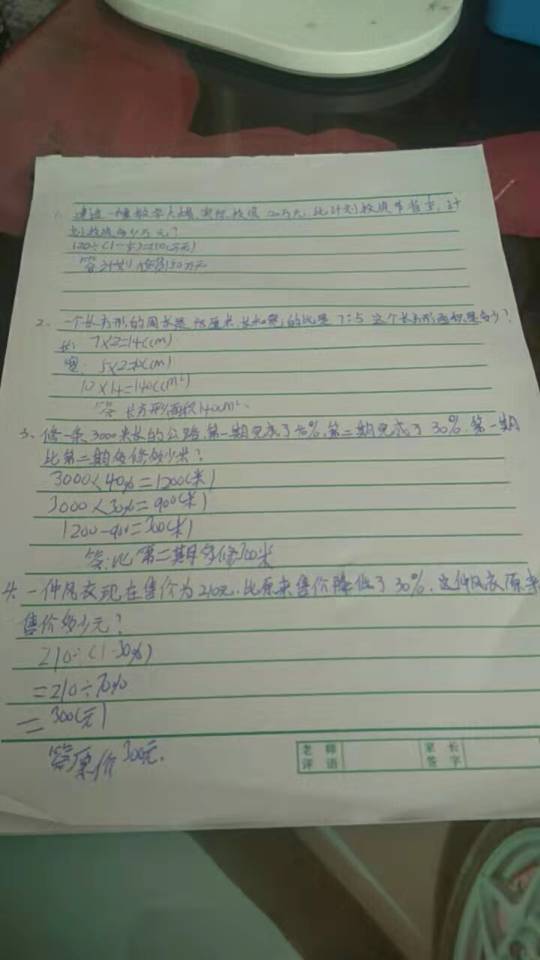 1. 建造一幢教学大楼,实际投资120万元,比计划投资节省,计
划投资多少万元?
答:计划投资150万元
2、一个长方形的周长是48厘米,长和宽的比是7:5这个长方形面积是多少?
长: 7×2=14(cm)
宽: 5×2=10(cm)
10×14=140(cm²)
答:长方形面积140cm².
3、修一条3000米长的公路,第一期完成了40%,第二期完成了30%,第一期
比第二期多修多少米?
3000×40%=1200(米)
3000×30%=900(米)
1200-900=300(米)
答:比第二期多修300米
4. 一件风衣现在售价为210元,比原来售价降低了30%,这件风衣原来
售价多少元?
210÷(1-30%)
=210÷70%
=300(元)
答原价300元.
老师评语 家长签字